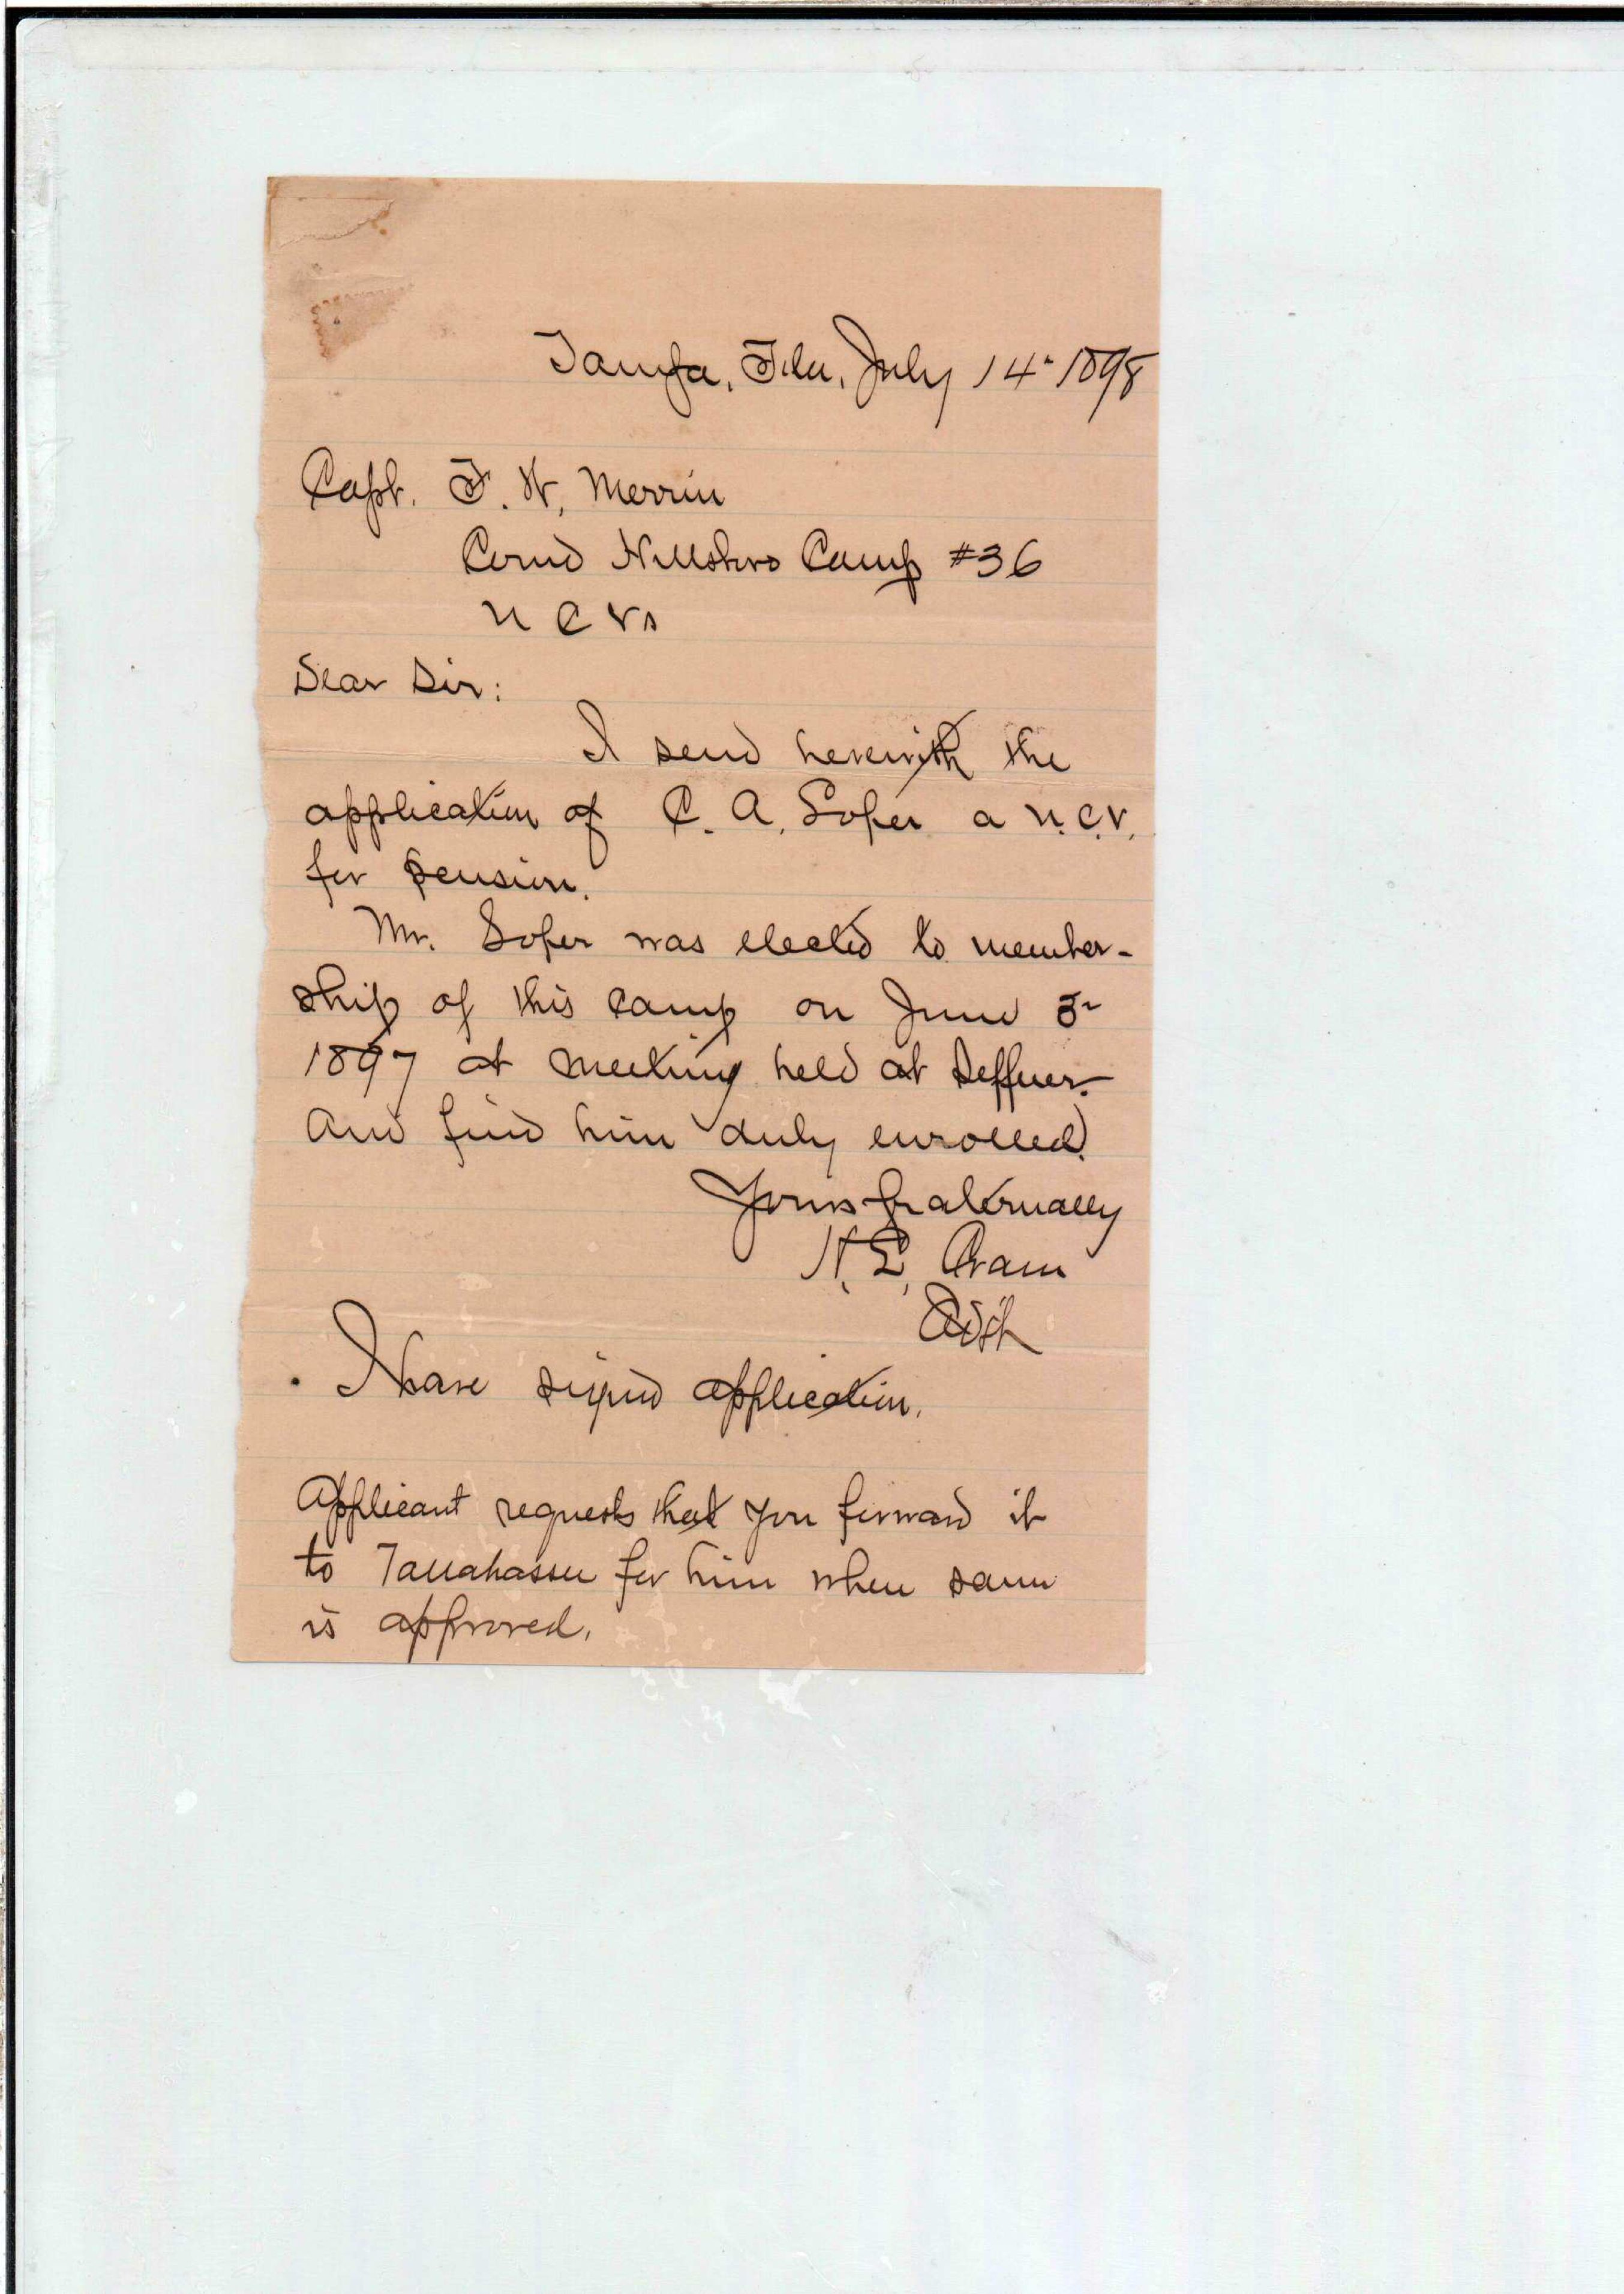 Tampa, Fla, July 14" 1898
Capt. F. W. Merrin
Comd Hillsboro Camp #36
U C Vs
Dear Sir:
I send herewith the
application of C. A. Soper a U.C.V.
for pension.
Mr. Soper was elected to member-
ship of this Camp on June 5"
1897 at meeting held at Seffner.
And find him duly enrolled.
Yours fraternally
H. L. Crane
Adjt
I have signed application.
Applicant requests that you forward it
to Tallahassee for him when same
is approved.